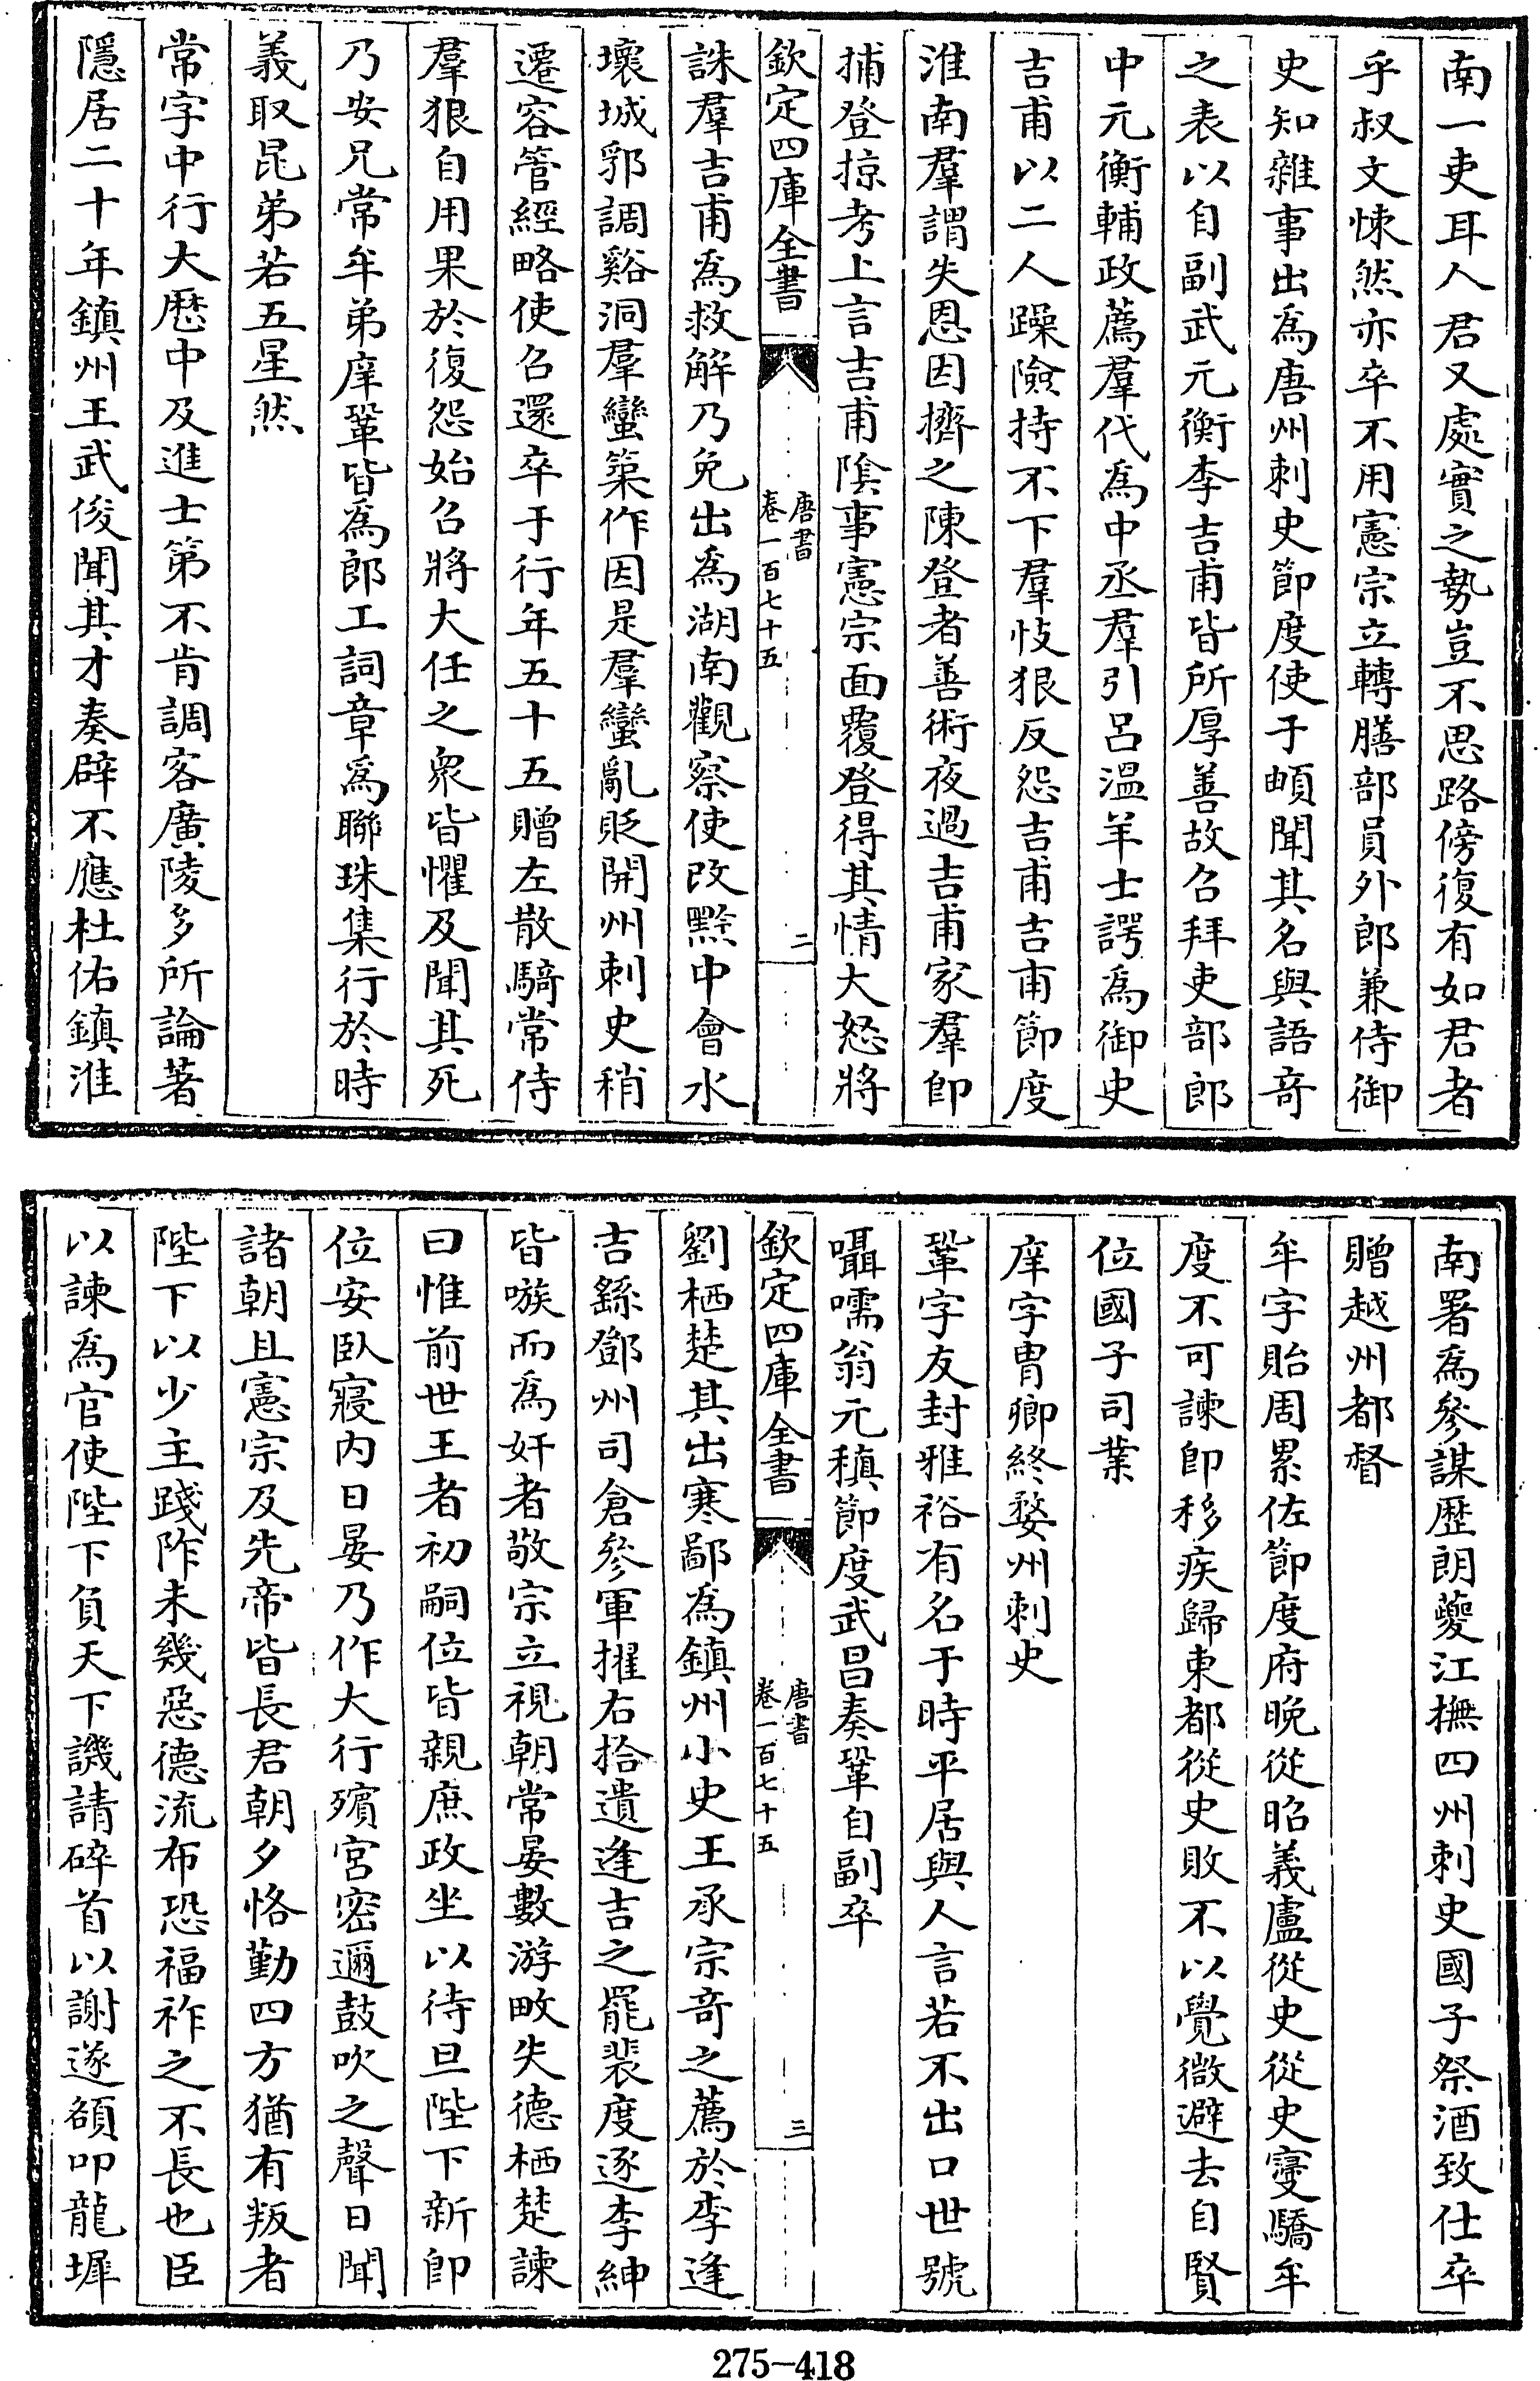 南一吏耳人君又處實之勢豈不思路傍復有如君者
乎叔文悚然亦卒不用憲宗立轉膳部員外郎兼侍御
史知雜事出爲唐州刺史節度使于頔聞其名與語奇
之表以自副武元衡李吉甫皆所厚善故召拜吏部郎
中元衡輔政薦羣代爲中丞羣引呂溫羊士諤爲御史
吉甫以二人躁險持不下羣忮狠反怨吉甫吉甫節度
淮南羣謂失恩因擠之陳登者善術夜過吉甫家羣即
捕登掠考上言吉甫陰事憲宗面覆登得其情大怒將
欽定四庫全書
唐書
卷一百七十五
二
誅羣吉甫爲救解乃免出爲湖南觀察使改黔中會水
壞城郛調谿洞羣蠻築作因是羣蠻亂貶開州刺史稍
遷容管經略使召還卒于行年五十五贈左散騎常侍
羣狠自用果於復怨始召將大任之衆皆懼及聞其死
乃安兄常牟弟庠鞏皆爲郎工詞章爲聯珠集行於時
義取昆弟若五星然
常字中行大厯中及進士第不肯調客廣陵多所論著
隱居二十年鎮州王武俊聞其才奏辟不應杜佑鎮淮
南署爲參謀歷朗夔江撫四州刺史國子祭酒致仕卒
贈越州都督
牟字貽周累佐節度府晚從昭義盧從史從史寖驕牟
度不可諫即移疾歸東都從史敗不以覺微避去自賢
位國子司業
庠字胄卿終婺州刺史
鞏字友封雅裕有名于時平居與人言若不出口世號
囁嚅翁元稹節度武昌奏鞏自副卒
欽定四庫全書
唐書
卷一百七十五
三
劉栖楚其出寒鄙爲鎮州小史王承宗奇之薦於李逢
吉繇鄧州司倉參軍擢右拾遺逢吉之罷裴度逐李紳
皆嗾而爲奸者敬宗立視朝常晏數游畋失德栖楚諫
曰惟前世王者初嗣位皆親庶政坐以待旦陛下新即
位安臥寢內日晏乃作大行殯宮密邇鼓吹之聲日聞
諸朝且憲宗及先帝皆長君朝夕恪勤四方猶有叛者
陛下以少主踐阼未幾惡德流布恐福祚之不長也臣
以諫爲官使陛下負天下譏請碎首以謝遂額叩龍墀
275-418